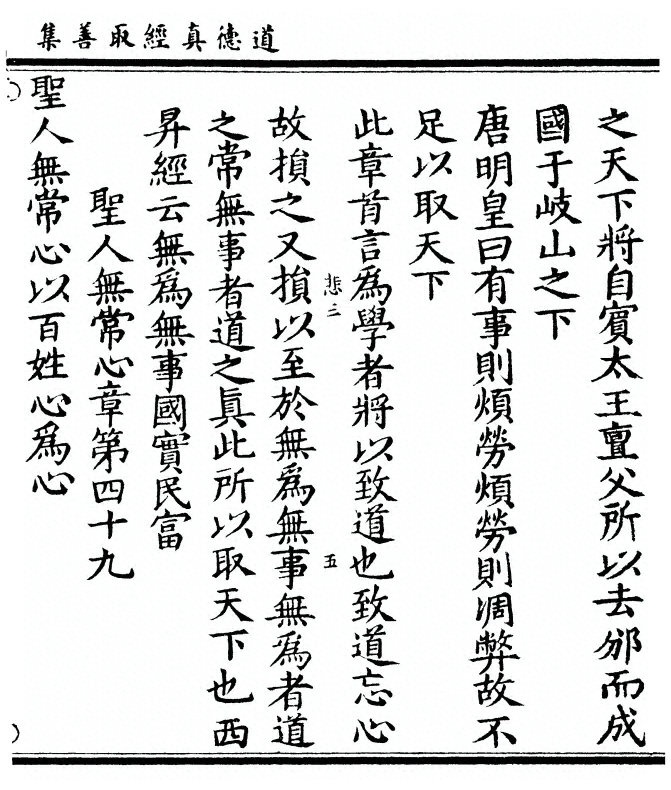 道德真經取善集
之天下將自賓太王亶父所以去邠而成
國于岐山之下
唐明皇曰有事則煩勞煩勞則凋弊故不
足以取天下
此章首言爲學者將以致道也致道忘心
悲三
五
故損之又損以至於無爲無事無爲者道
之常無事者道之眞此所以取天下也西
昇經云無爲無事國實民富
聖人無常心章第四十九
聖人無常心以百姓心爲心